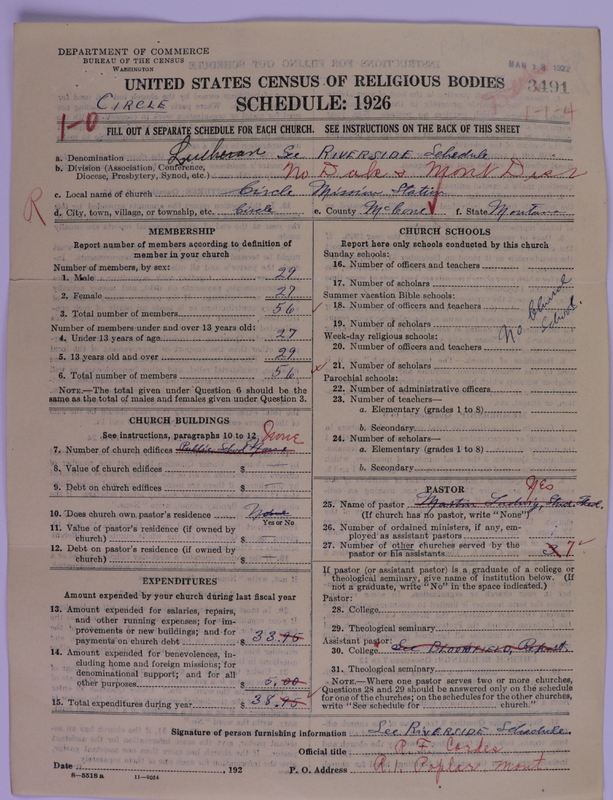 DEPARTMENT OF COMMERCE
BUREAU OF THE CENSUS
WASHINGTON
MAR 18 1927
UNITED STATES CENSUS OF RELIGIOUS BODIES
3491
CIRCLE
SCHEDULE: 1926
1-1-4
1-0
FILL OUT A SEPARATE SCHEDULE FOR EACH CHURCH. SEE INSTRUCTIONS ON THE BACK OF THIS SHEET
a. Denomination Lutheran See RIVERSIDE Schedule
b. Division (Association, Conference, Diocese, Presbytery, Synod, etc.) No Dak & Mont Dist
c. Local name of church Circle Mission Station
R
d. City, town, village, or township, etc. Circle e. County McCone f. State Montana
MEMBERSHIP
Report number of members according to definition of
member in your church
Number of members, by sex:
1. Male 29
2. Female 27
3. Total number of members 56
Number of members under and over 13 years old:
4. Under 13 years of age 27
5. 13 years old and over 29
6. Total number of members 56
NOTE.—The total given under Question 6 should be
same as the total of males and females given under Question 3.
CHURCH BUILDINGS
See instructions, paragraphs 10 to 12
None
7. Number of church edifices Public School None
8. Value of church edifices $ —
9. Debt on church edifices $ —
10. Does church own pastor's residence None
Yes or No
11. Value of pastor's residence (if owned by
church) $ —
12. Debt on pastor's residence (if owned by
church) $ —
EXPENDITURES
Amount expended by your church during last fiscal year
13. Amount expended for salaries, repairs,
and other running expenses; for im-
provements or new buildings; and for
payments on church debt $ 33.95
14. Amount expended for benevolences, in-
cluding home and foreign missions; for
denominational support; and for all
other purposes $ 5.00
15. Total expenditures during year $ 38.95
CHURCH SCHOOLS
Report here only schools conducted by this church
Sunday schools:
16. Number of officers and teachers
17. Number of scholars
Summer vacation Bible schools:
18. Number of officers and teachers
19. Number of scholars
No Church School
Week-day religious schools:
20. Number of officers and teachers
21. Number of scholars
Parochial schools:
22. Number of administrative officers
23. Number of teachers—
a. Elementary (grades 1 to 8)
b. Secondary
24. Number of scholars—
a. Elementary (grades 1 to 8)
b. Secondary
PASTOR
Yes
25. Name of pastor Martin Stud. Theol.
(If church has no pastor, write "None")
26. Number of ordained ministers, if any, em-
ployed as assistant pastors
27. Number of other churches served by the
pastor or his assistants 7
If pastor (or assistant pastor) is a graduate of a college or
theological seminary, give name of institution below. (If
not a graduate, write "No" in the space indicated.)
Pastor:
28. College
29. Theological seminary
Assistant pastor:
30. College See BROOMFIELD, Report.
31. Theological seminary
NOTE.—Where one pastor serves two or more churches,
Questions 28 and 29 should be answered only on the schedule
for one of the churches; on the schedules for the other churches,
write "See schedule for church."
Signature of person furnishing information See RIVERSIDE Schedule.
Official title P. F. Cordes
Date , 192 P. O. Address R.1. Poplar Mont
8—5518 a 11—9054